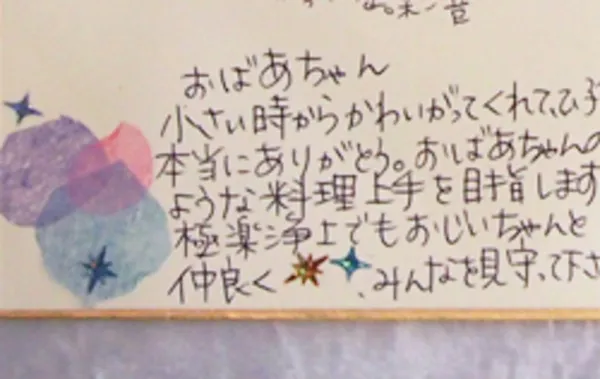 おばあちゃん
小さい時からかわいがってくれて、
本当にありがとう。おばあちゃんの
ような料理上手を目指します
極楽浄土でもおじいちゃんと
仲良く、みんなを見守って下さ